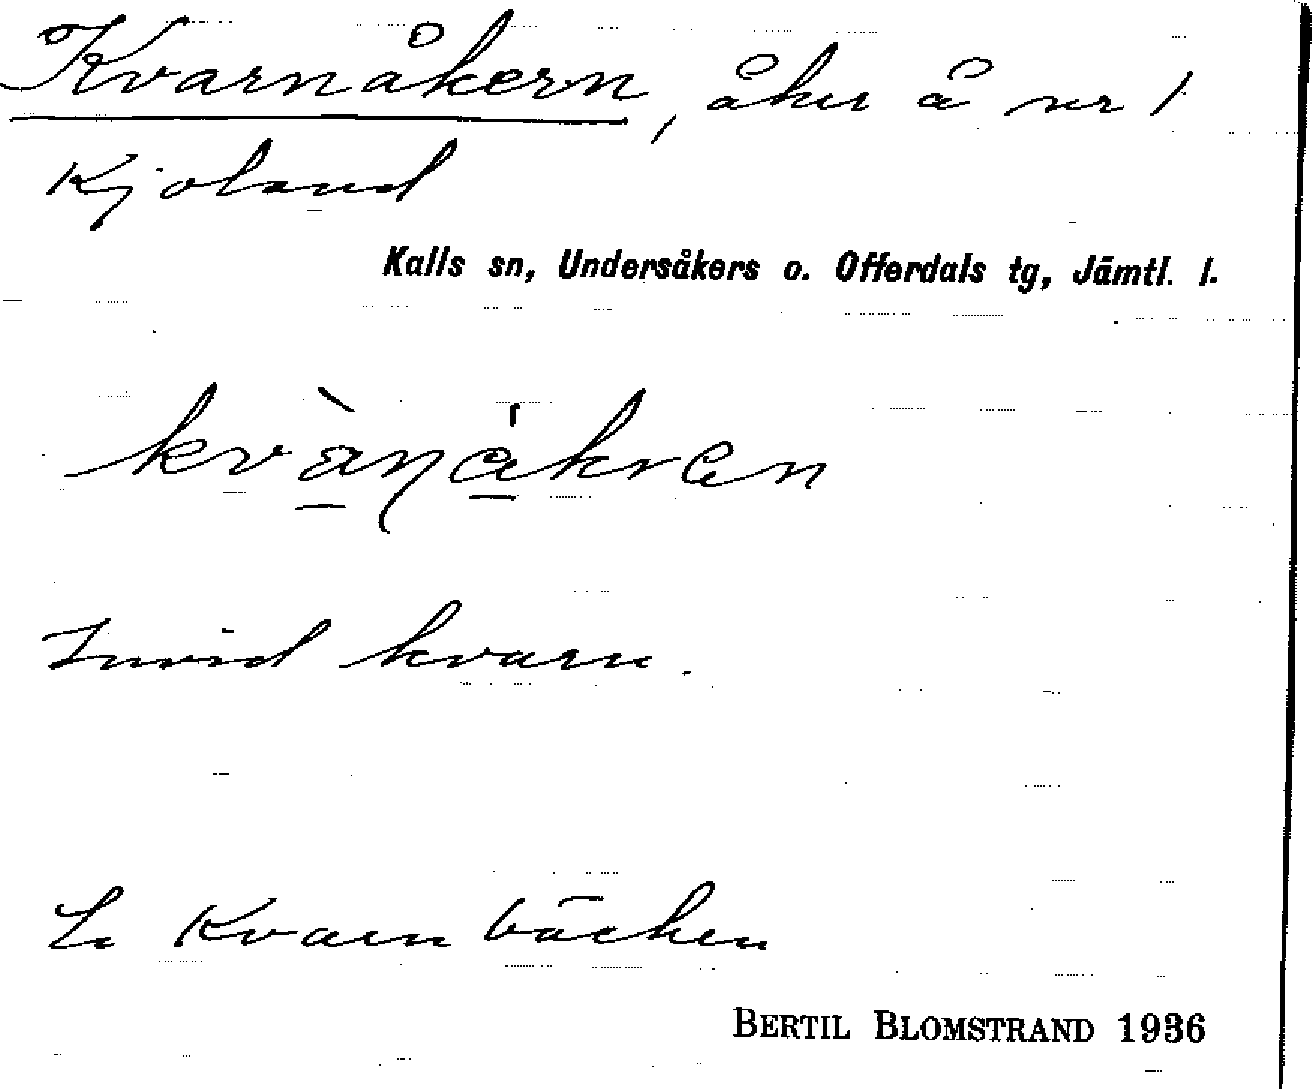 Kvarnåkern, åker å nr 1
Kjoland
Kalls sn, Undersåkers o. Offerdals tg, Jämtl. l.
kvànåkren
Invid kvarn.
Se Kvarnbäcken
BERTIL BLOMSTRAND 1936